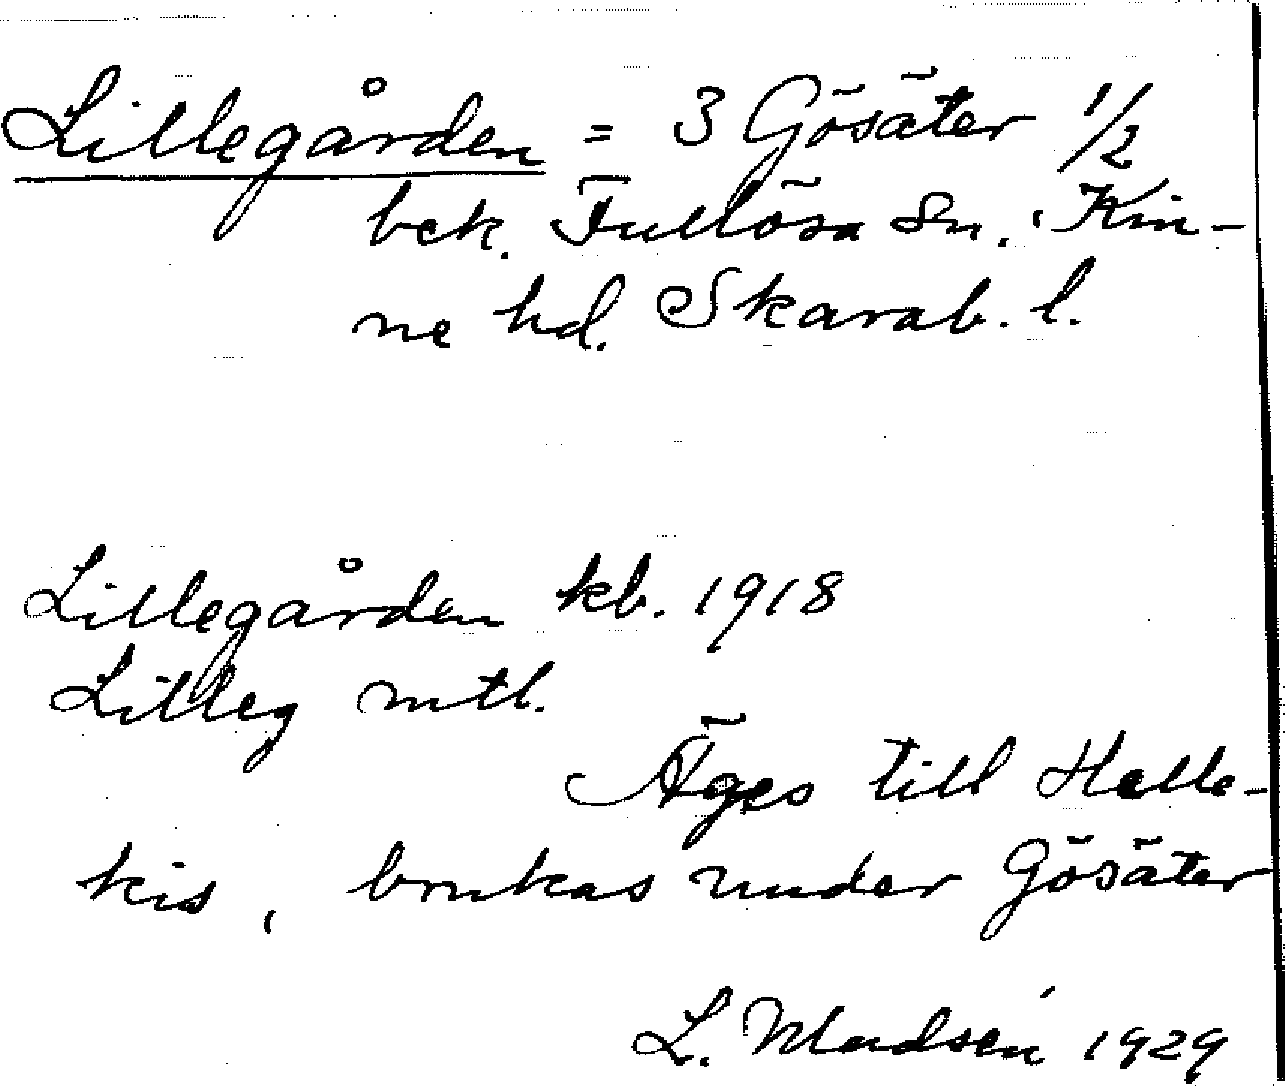 Lillegården = 3 Gösäter 1/2
bek. Fullösa Sn. Kin-
ne hd. Skarab. l.
Lillegården kb. 1918
Lilleg mtl.
Äges till Helle-
kis, brukas under Gösäter
L. Madsén 1929